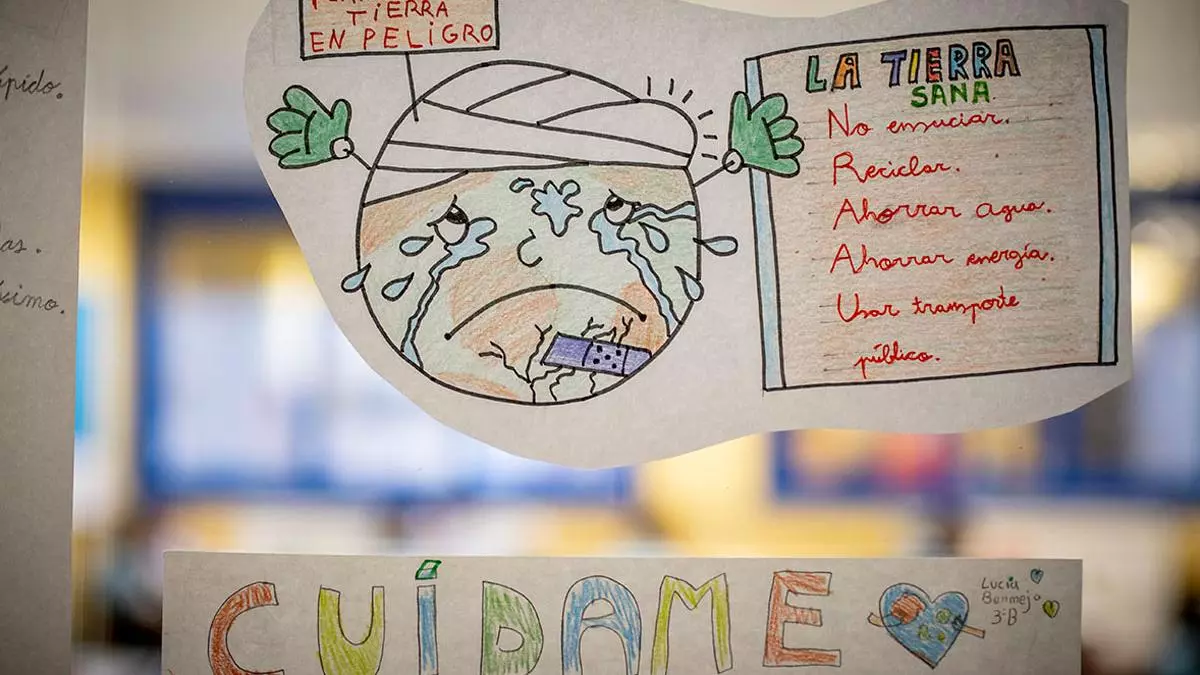 TIERRA
EN PELIGRO
LA TIERRA
SANA
No ensuciar.
Reciclar.
Ahorrar agua.
Ahorrar energía.
Usar transporte
público.
CUÍDAME
Lucía
Bermejo
3ºB